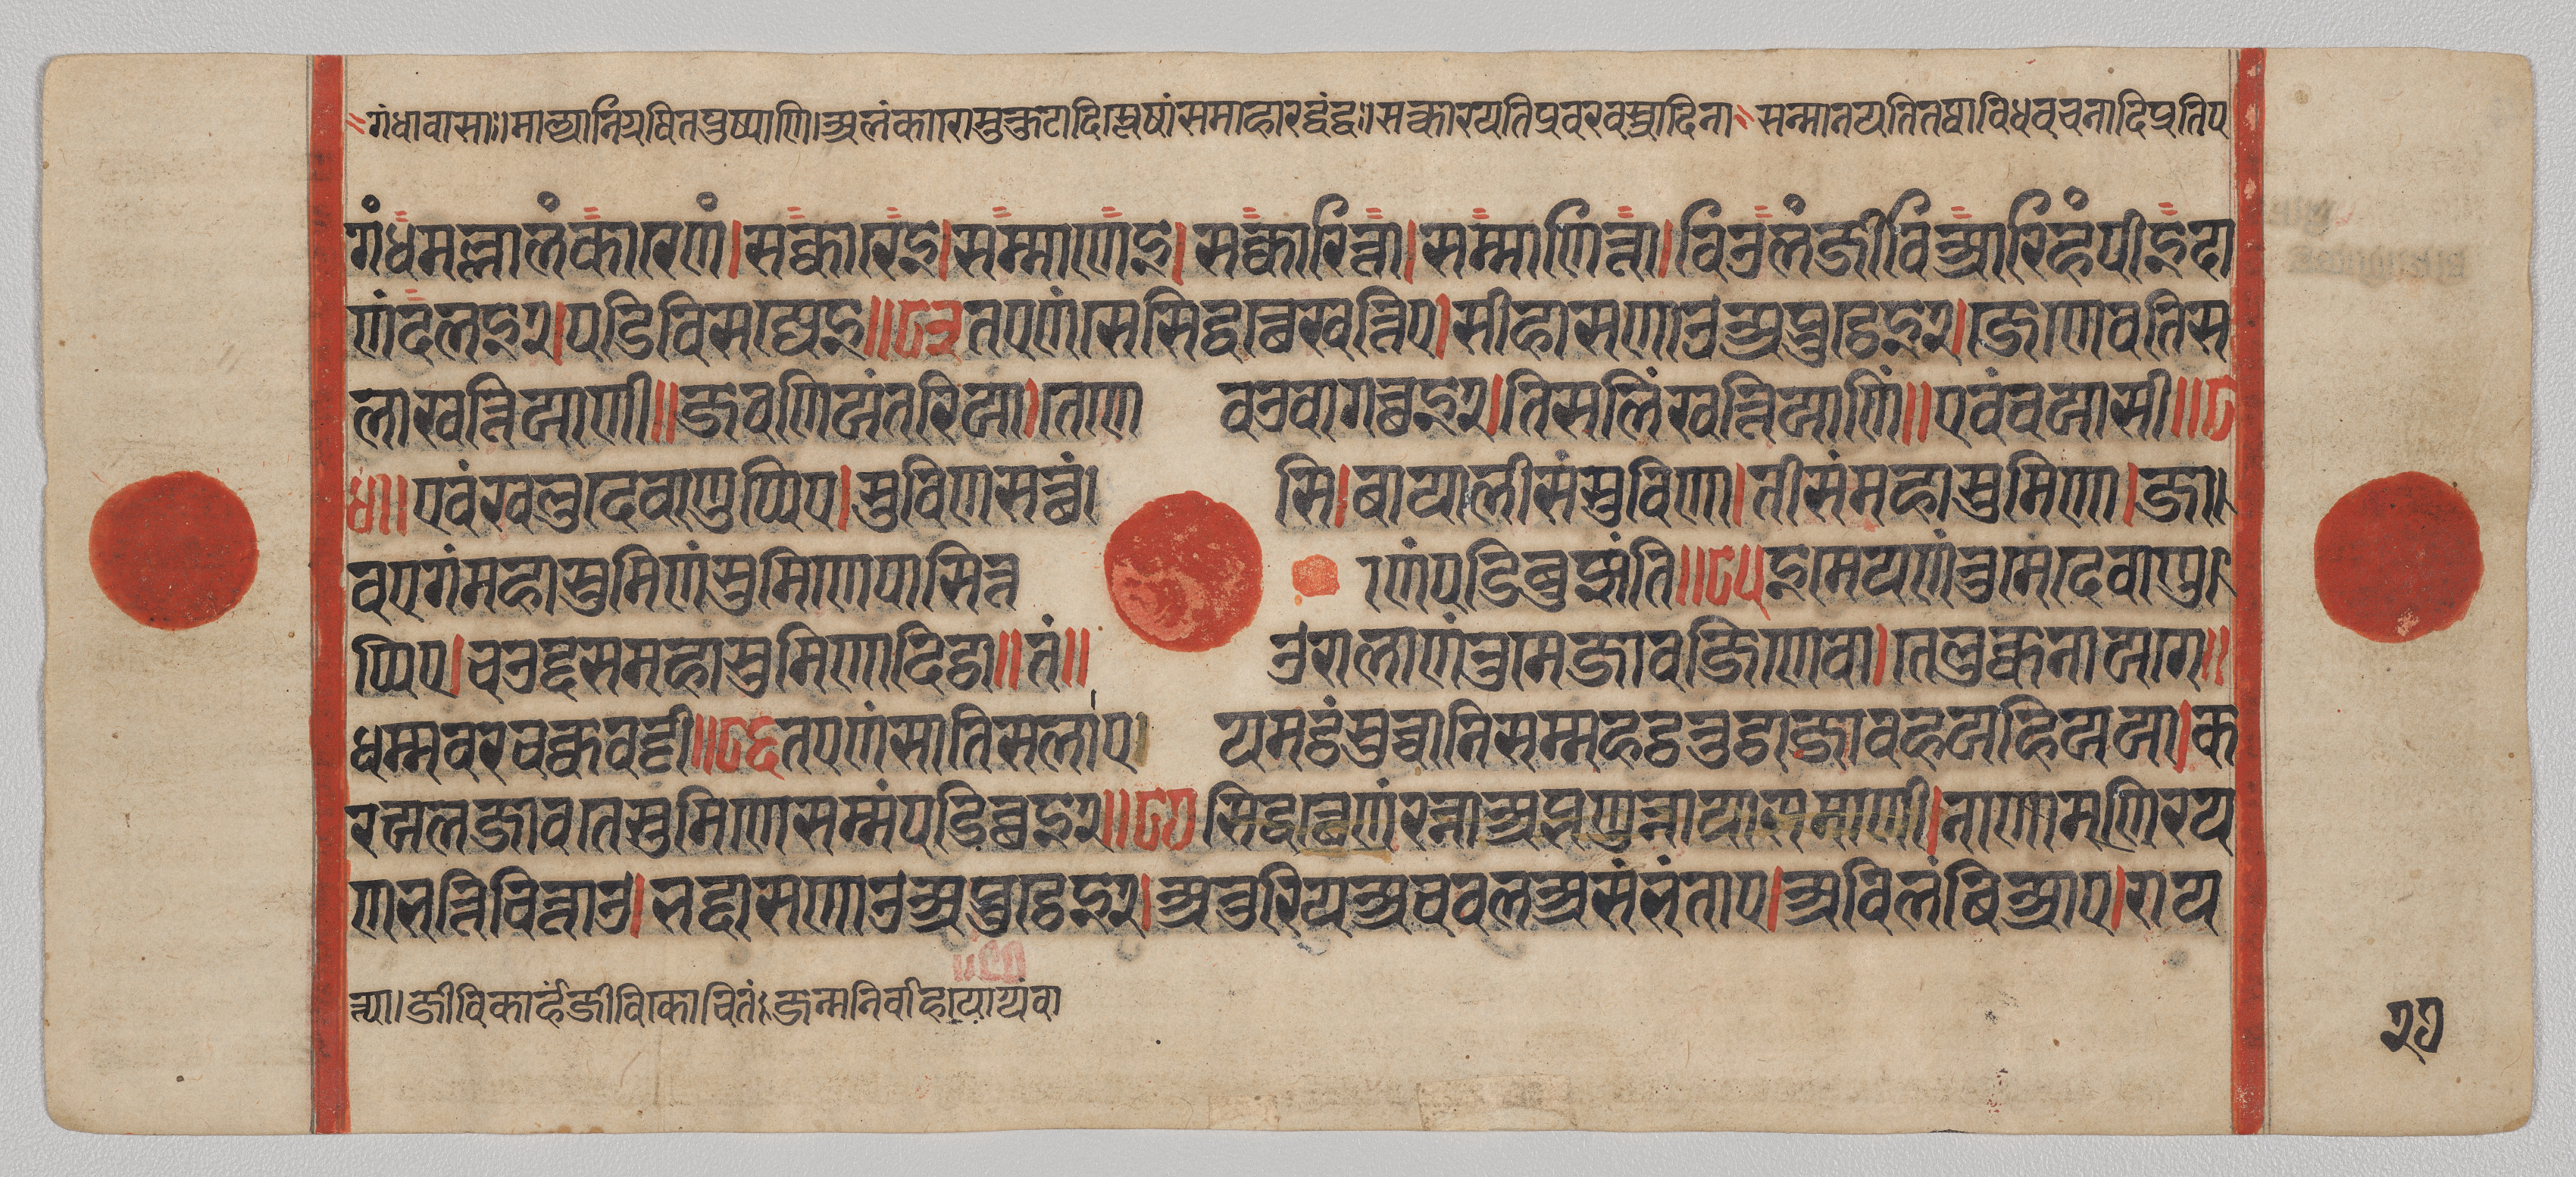 गंधावासाः।माल्यानिग्रथितपुष्पाणि।अलंकारोमुकुटादिस्तेषांसमाहारद्वंद्वः।सक्कारयतिप्रवरवस्त्रादिना सन्मानयतितथाविधवचनादिप्रतिप
गंधमल्लालंकारेणं।सक्कारेइ।सम्माणेइ।सक्कारित्ता।सम्माणित्ता।विउलंजीविआरिहंपीइदा
णंदलइ२।पडिविसज्जेइ॥८४तएणंसेसिद्धत्थेखत्तिए।सीहासणाउअप्भुट्ठेइ२।जेणेवतिस
लाखत्तिआणी॥जवणिअंतरिआ।तेणे वउवागच्छइ२।तिसलिंखत्तिआणिं॥एवंवयासी॥८
५॥एवंखलुदेवाणुप्पिए।सुविणसत्थं सि।बायालीसंसुविणा।तीसंमहासुमिणा।जा
वएगंमहासुमिणंसुमिणेपासित्ता णंपडिबुझंति॥८५इमेयणंतुमेदेवाणु
प्पिए।चउद्दसमहासुमिणादिट्ठा॥तं॥ उरालाणंतुमेजावजिणेवा।तेलुक्कनायगे॥
धम्मवरचक्कवट्टी॥८६तएणंसातिसलाए यमट्ठंसुच्चानिसम्महट्ठतुट्ठाजावहयहिअया।क
रयलजावतेसुमिणेसम्मंपडिच्छइ२॥८७सिद्धत्थेणंरन्नाअप्भणुन्नायासमाणी।नाणामणिरय
णभत्तिचित्ताउ।भद्दासणाउअप्भुट्ठेइ२।अतुरियअचवलअसंभंताए।अविलंबिआए।राय
त्त्या।जीविकार्हंजीविकोचितं।जन्मनिर्वाहयोग्यंवा
२७